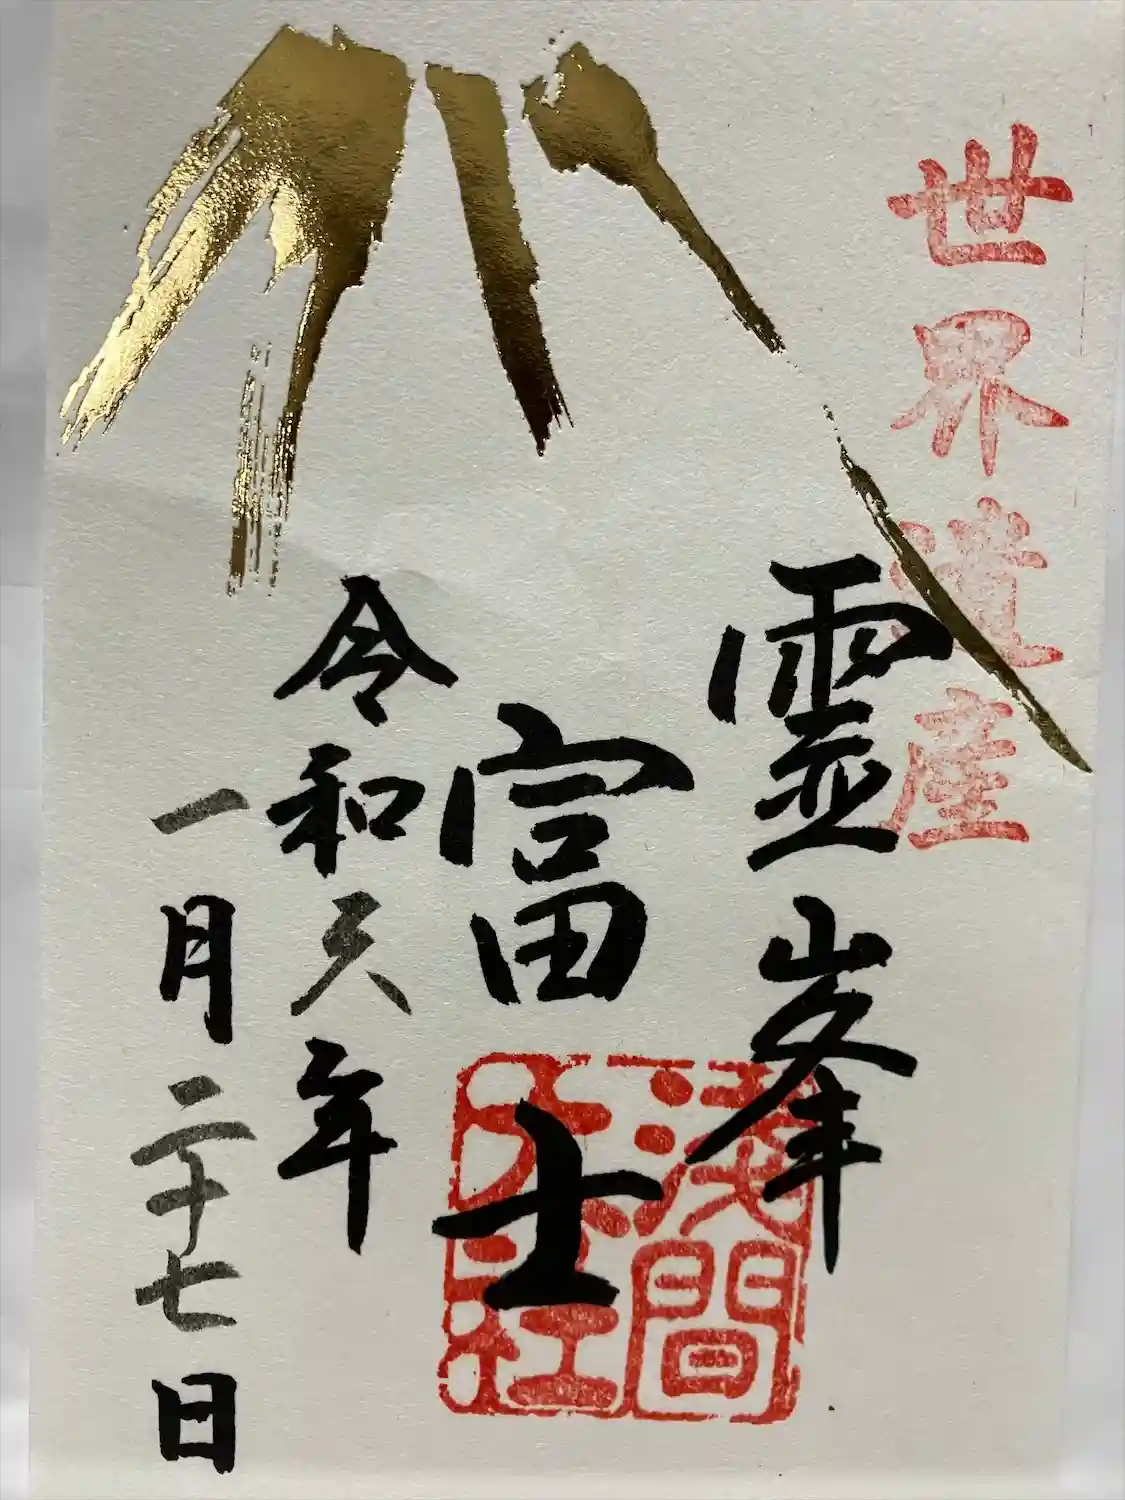 世界遺産
霊峯
富士
浅間
大社
令和六年
一月二十七日